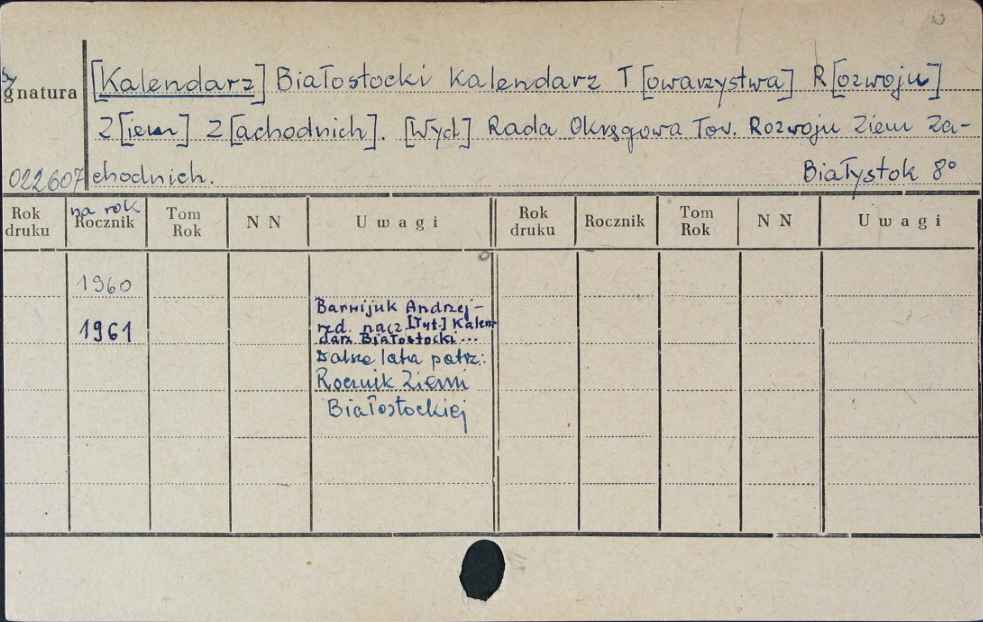 Sygnatura [Kalendarz] Białostocki Kalendarz T[owarzystwa] R[ozwoju]
Z[iem] Z[achodnich]. [Wyd.] Rada Okręgowa Tow. Rozwoju Ziem Za-
022607 chodnich. Białystok 8°
Rok druku na rok Rocznik Tom Rok N N Uwagi Rok druku Rocznik Tom Rok N N Uwagi
1960
Barwijuk Andrzej -
1961 red. nacz. [Tyt.] Kalen-
darz Białostocki...
Dalsze lata patrz:
Rocznik Ziemi
Białostockiej